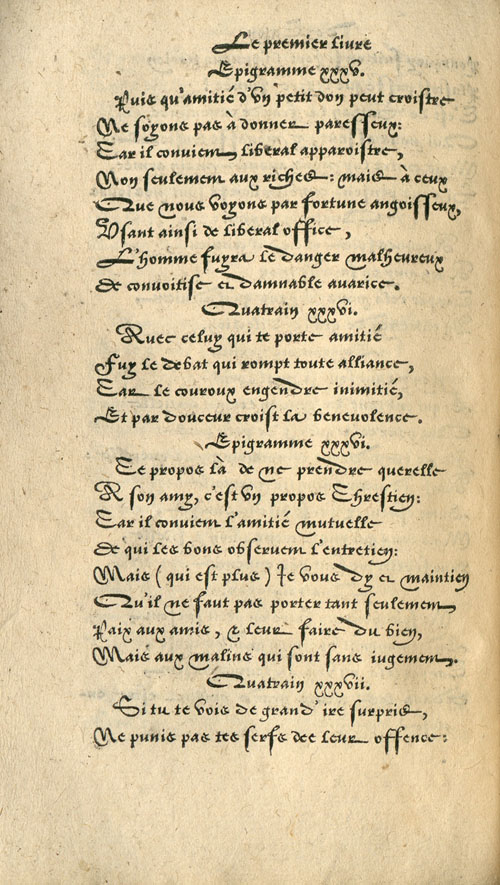 Le premier livre
Epigramme xxxv.
Puis qu'amitié d'vn petit don peut croistre
Ne soyons pas à donner paresseux:
Car il convient liberal apparoistre,
Non seulement aux riches: mais à ceux
Que nous voyons par fortune angoisseux,
Vsant ainsi de liberal office,
L'homme fuyra le danger malheureux
De convoitise et damnable avarice.
Quatrain xxxvi.
Avec celuy qui te porte amitié
Fuy le debat qui rompt toute alliance,
Car le couroux engendre inimitié,
Et par douceur croist la benevolence.
Epigramme xxxvi.
Ce propos là de ne prendre querelle
A son amy, c'est vn propos Chrestien:
Car il convient l'amitié mutuelle
De qui les bons observent l'entretien:
Mais (qui est plus) Ie vous dy et maintien
Qu'il ne faut pas porter tant seulement
Paix aux amis, & leur faire du bien,
Mais aux malins qui sont sans iugement.
Quatrain xxxvii.
Si tu te vois de grand' ire surpris,
Ne punis pas tes serfs dee leur offence: